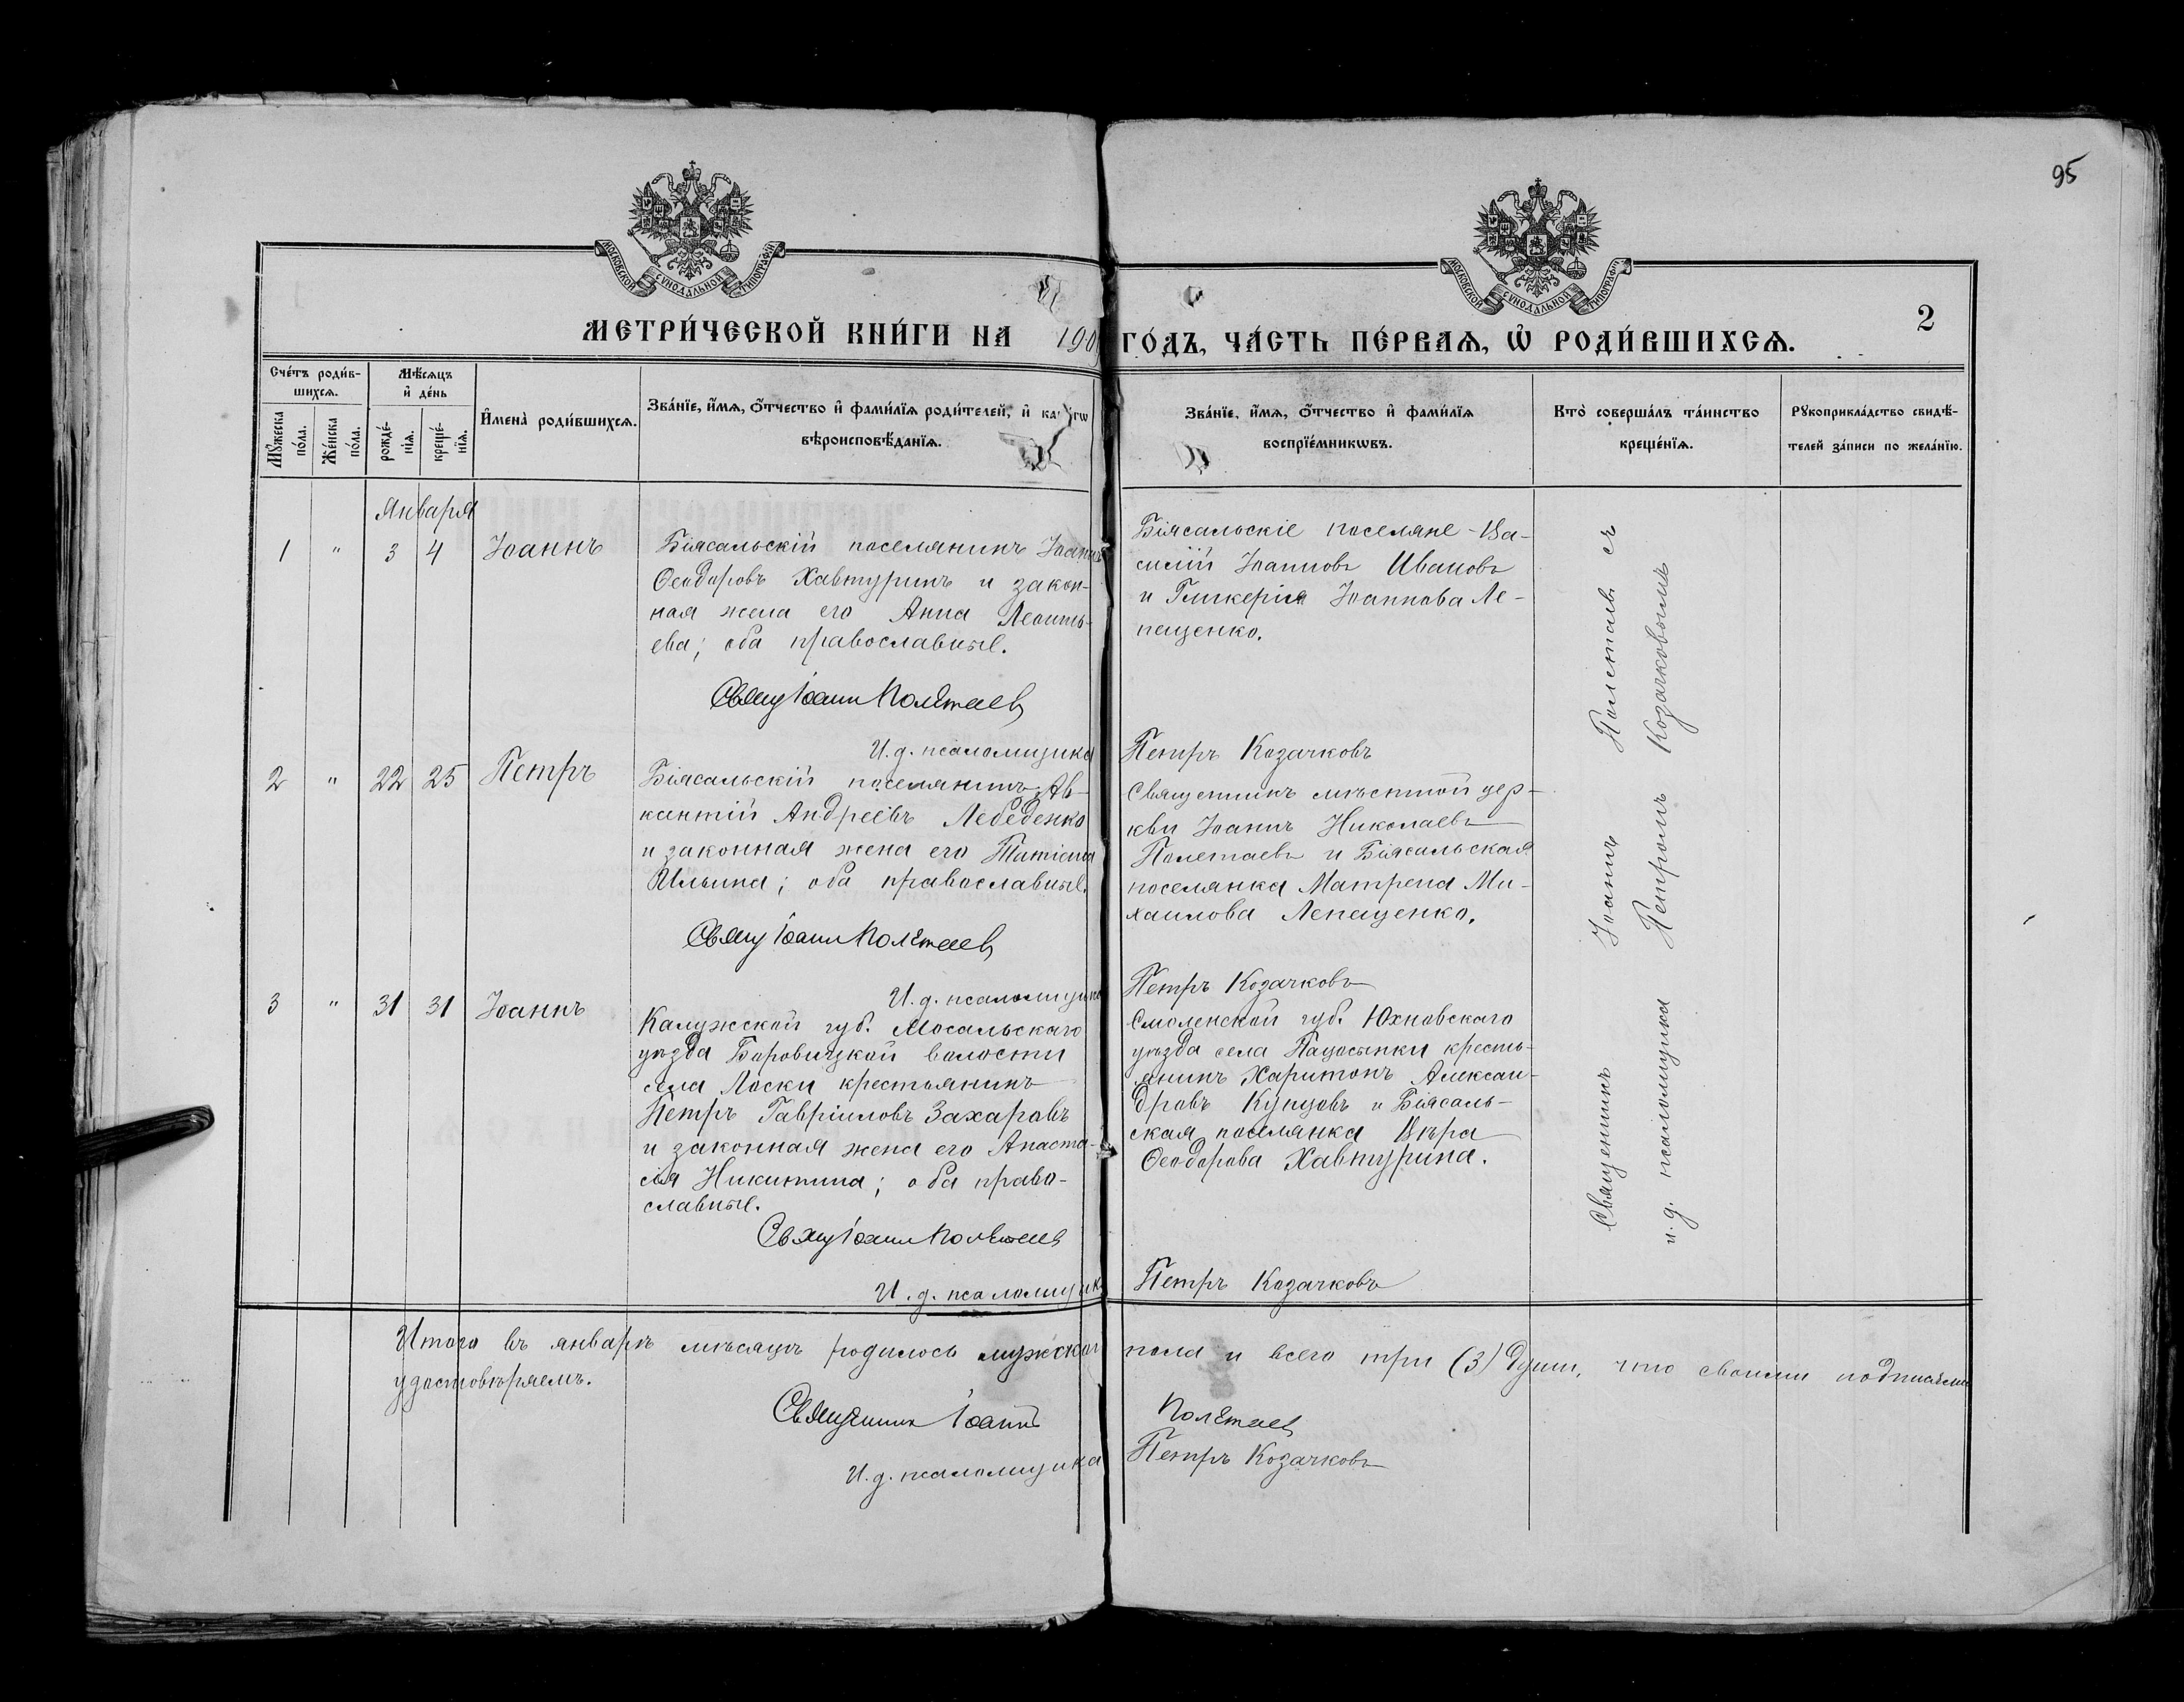 95
МОСКОВСКОЙ СѴНОДАЛЬНОЙ ТИПОГРАФІИ
МОСКОВСКОЙ СѴНОДАЛЬНОЙ ТИПОГРАФІИ
МЕТРИ́ЧЕСКОЙ КНИ́ГИ НА 190
ГО́ДЪ, ЧА́СТЬ ПЕ́РВАѦ, Ѽ РОДИ́ВШИХСѦ.
2
Сче́тъ роди́в-
шихсѧ.
Мꙋ́жеска
по́ла.
Же́нска
по́ла.
Мѣ́сѧцъ
и҆ де́нь
рожде́-
нїѧ.
креще́-
нїѧ.
И҆мена̀ роди́вшихсѧ.
Зва́нїе, и҆́мѧ, ѻ҆́тчество и҆ фами́лїѧ роди́телей, и҆
вѣроисповѣ́данїѧ.
Зва́нїе, и҆́мѧ, ѻ҆́тчество и҆ фами́лїѧ
воспрїе́мникѡвъ.
Кто̀ соверша́лъ та́инство
креще́нїѧ.
Рꙋкоприкла́дство свидѣ́-
телей за́писи по жела́нїю.
Января
1 " 3 4 Іоаннъ
Біясальскій поселянинъ Іоаннъ
Ѳеодоровъ Хавтуринъ и закон-
ная жена его Анна Леонть-
ева; оба православные.
Свящ Іоанн Полетаев
И. д. псаломщика
Біясальскіе поселяне Ва-
силій Іоанновъ Ивановъ
и Гликерія Іоаннова Ле-
пещенко.
Петръ Козачковъ
2 " 22 25 Петръ
Біясальскій поселянинъ Ав-
кентій Андреевъ Лебеденко
и законная жена его Татіана
Ильина; оба православные.
Свящ Іоанн Полетаев
И. д. псаломщика
Священникъ мѣстной цер-
кви Іоаннъ Николаевъ
Полетаевъ и Біясальская
поселянка Матрена Ми-
хаилова Лепещенко.
Петръ Козачковъ
3 " 31 31 Іоаннъ
Калужской губ. Мосальскаго
уѣзда Боровицкой волости
села Лоски крестьянинъ
Петръ Гавріиловъ Захаровъ
и законная жена его Анаста-
сія Никитина; оба право-
славные.
Свящ Іоанн Полетаев
И. д. псаломщика
Смоленской губ. Юхновскаго
уѣзда села кресть-
янинъ Харитонъ Алексан-
дровъ Купцовъ и Біясаль-
ская поселянка Вѣра
Ѳеодорова Хавтурина.
Петръ Козачковъ
Священникъ Іоаннъ Полетаевъ съ
и. д. псаломщика Петромъ Козачковымъ
Итого въ январѣ мѣсяцѣ родилось мужского пола и всего три (3) души, что своими подписями
удостовѣряемъ.
Священник Іоаннъ Полетаев
И. д. псаломщика Петръ Козачковъ